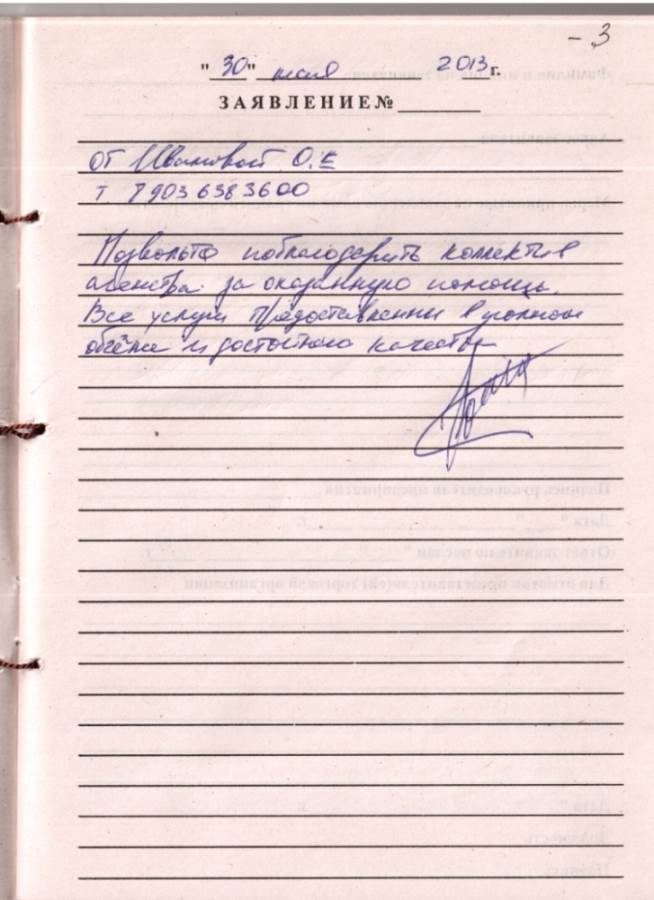 - 3
"30" июля 2013 г.
ЗАЯВЛЕНИЕ №
от Ивановой О.Е
т 8 903 638 3600
Позвольте поблагодарить коллектив
агенства за оказанную помощь.
Все услуги предоставленны в полном
объёме и достойного качества